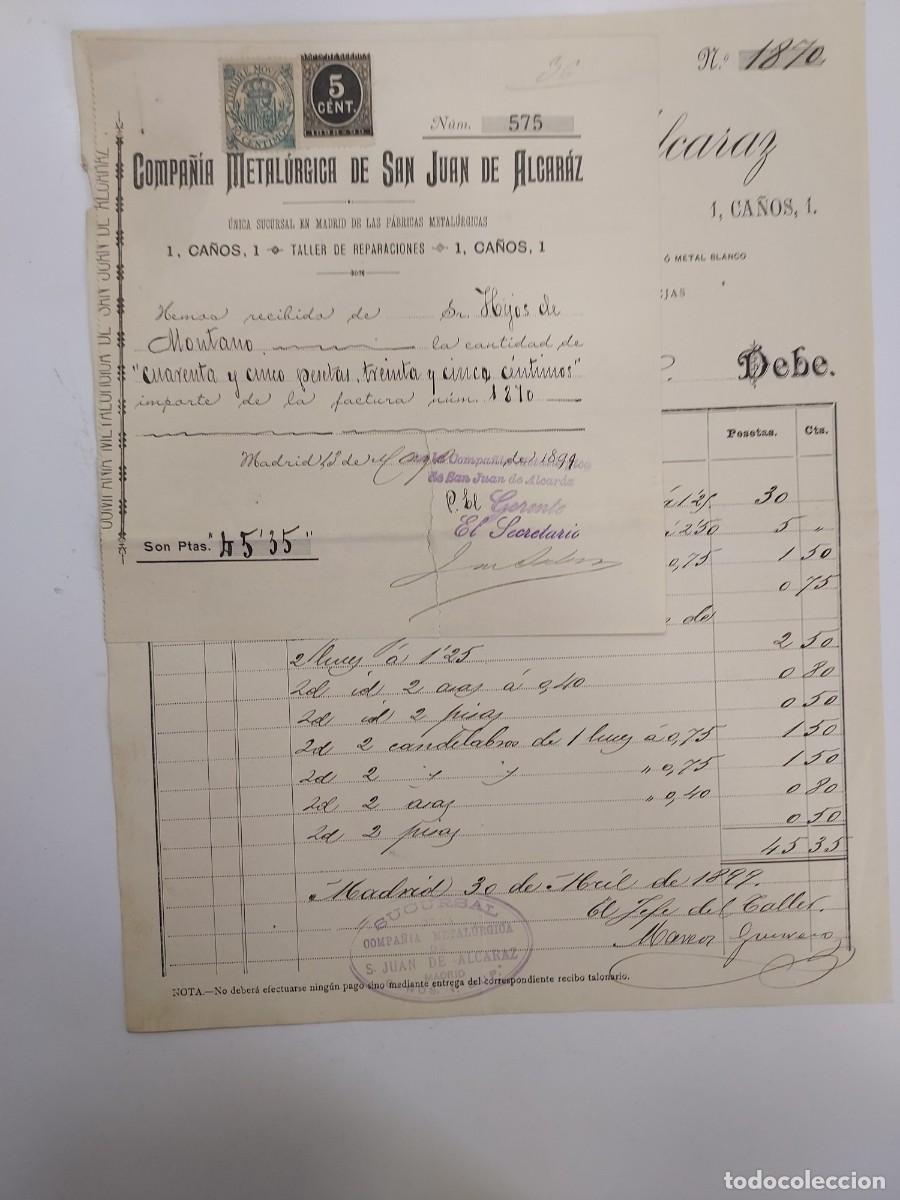 36
TIMBRE MOVIL
10 CENTIMOS
5
CENT.
1898-99
Núm. 575
COMPAÑÍA METALÚRGICA DE SAN JUAN DE ALCARÁZ
ÚNICA SUCURSAL EN MADRID DE LAS FÁBRICAS METALÚRGICAS
1, CAÑOS, 1 TALLER DE REPARACIONES 1, CAÑOS, 1
Hemos recibido de Sr. Hijos de
Montano la cantidad de
"cuarenta y cinco pesetas, treinta y cinco céntimos"
importe de la factura núm. 1870
Madrid de de 1899
la Compañía
de San Juan de Alcaráz
P. El Gerente
El Secretario
Son Ptas. "45'35"
COMPAÑÍA METALÚRGICA DE SAN JUAN DE ALCARAZ
N.º 1870
lcaraz
1, CAÑOS, 1.
Ó METAL BLANCO
JAS
Debe.
Pesetas. Cts.
á 1'25 30
á 2'50 5 "
0,75 1 50
0 75
de
2 luces á 1'25 2 50
2d id 2 asas á 0,40 0 80
2d id 2 pisas 0 50
2d 2 candelabros de 1 luces á 0,75 1 50
2d 2 " " " 0,75 1 50
2d 2 asas " 0,40 0 80
2d 2 pisas 0 50
45 35
Madrid 30 de Abril de 1899.
El Jefe del Taller.
Guerrero
SUCURSAL
COMPAÑIA METALURGICA
S. JUAN DE ALCARAZ
MADRID
NOTA.—No deberá efectuarse ningún pago sino mediante entrega del correspondiente recibo talonario.
todocoleccion